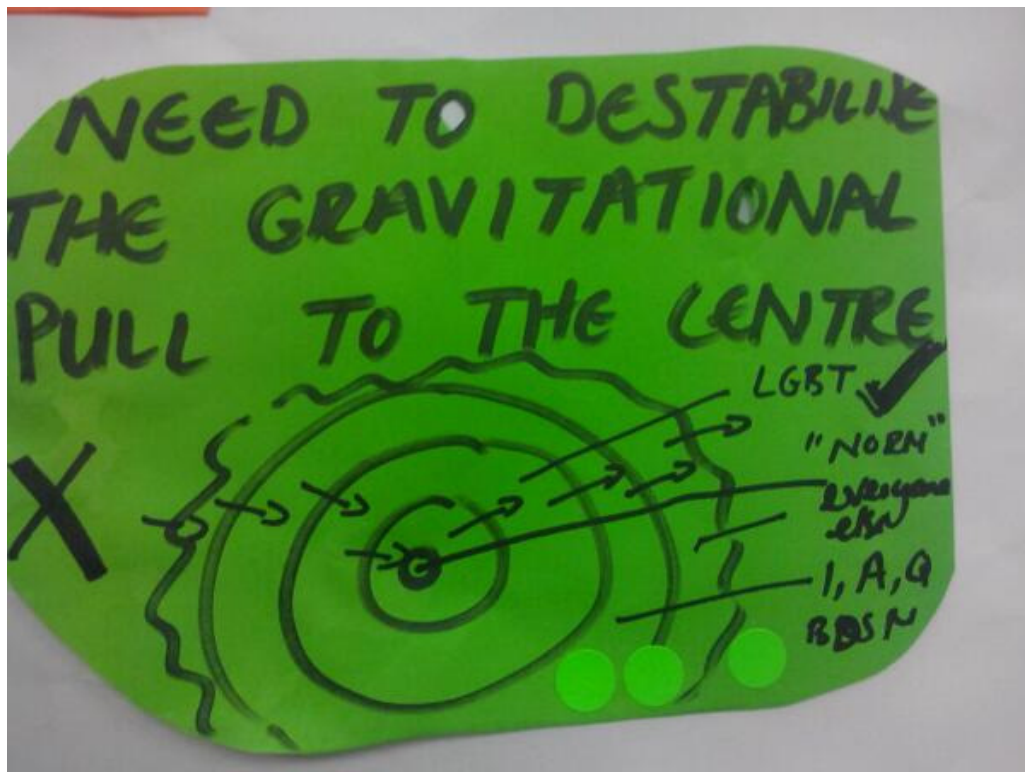 NEED TO DESTABILISE
THE GRAVITATIONAL
PULL TO THE CENTRE
LGBT ✓
"NORM"
everyone
else
I, A, Q
BDSM
X